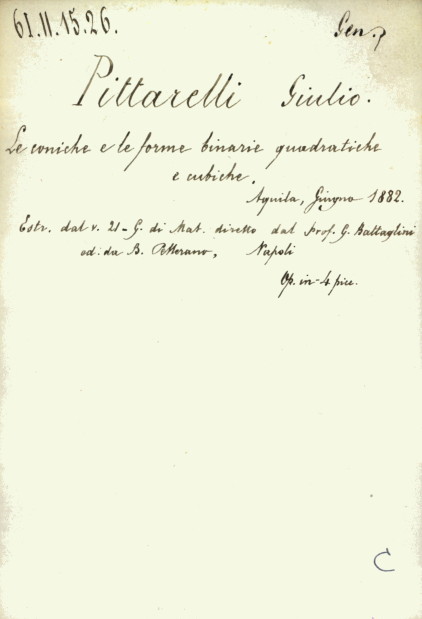 61.II.15.26.
Gen.
Pittarelli Giulio.
Le coniche e le forme binarie quadratiche
e cubiche.
Aquila, Giugno 1882.
Estr. dal v. 21 - G. di Mat. diretto dal Prof. G. Battaglini
ed. da B. Pellerano, Napoli
Op. in-4 picc.
C